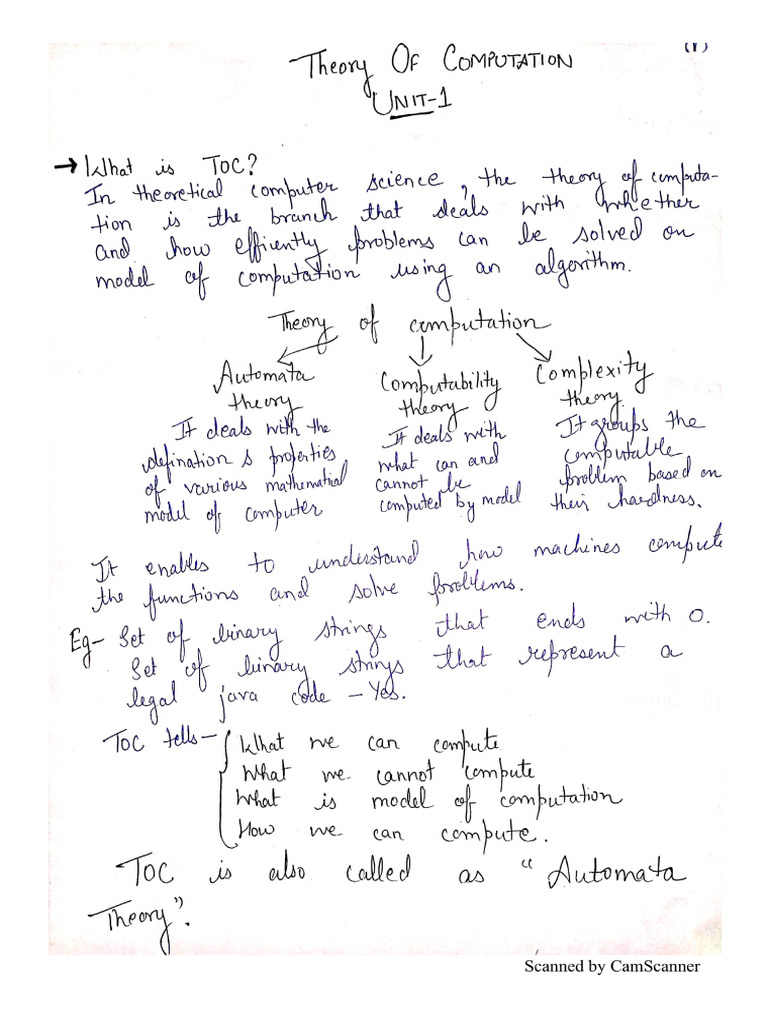 (1)
Theory OF COMPUTATION
UNIT-1
→ What is TOC?
In theoretical computer science, the theory of computa-
tion is the branch that deals with whether
and how effiently problems can be solved on
model of computation using an algorithm.
Theory of computation
Automata theory
It deals with the
defination & properties
of various mathematial
model of computer
Computability theory
It deals with
what can and
cannot be
computed by model
Complexity theory.
It groups the
computable
problem based on
their hardness.
It enables to understand how machines compute
the functions and solve problems.
Eg- Set of binary strings that ends with 0.
Set of binary strings that represent a
legal java code - Yes.
TOC tells- What we can compute
What we cannot compute
What is model of computation
How we can compute.
TOC is also called as "Automata
Theory".
Scanned by CamScanner